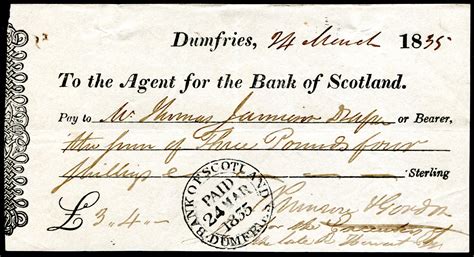 Dumfries, 24 March 1835
To the Agent for the Bank of Scotland.
Pay to Mr Thomas Jamieson Draper or Bearer,
the sum of Three Pounds four
shillings Sterling
£3,4,-
Gordon
for the
the late
BANK OF SCOTLAND
PAID
24 MAR
1835
DUMFRIES